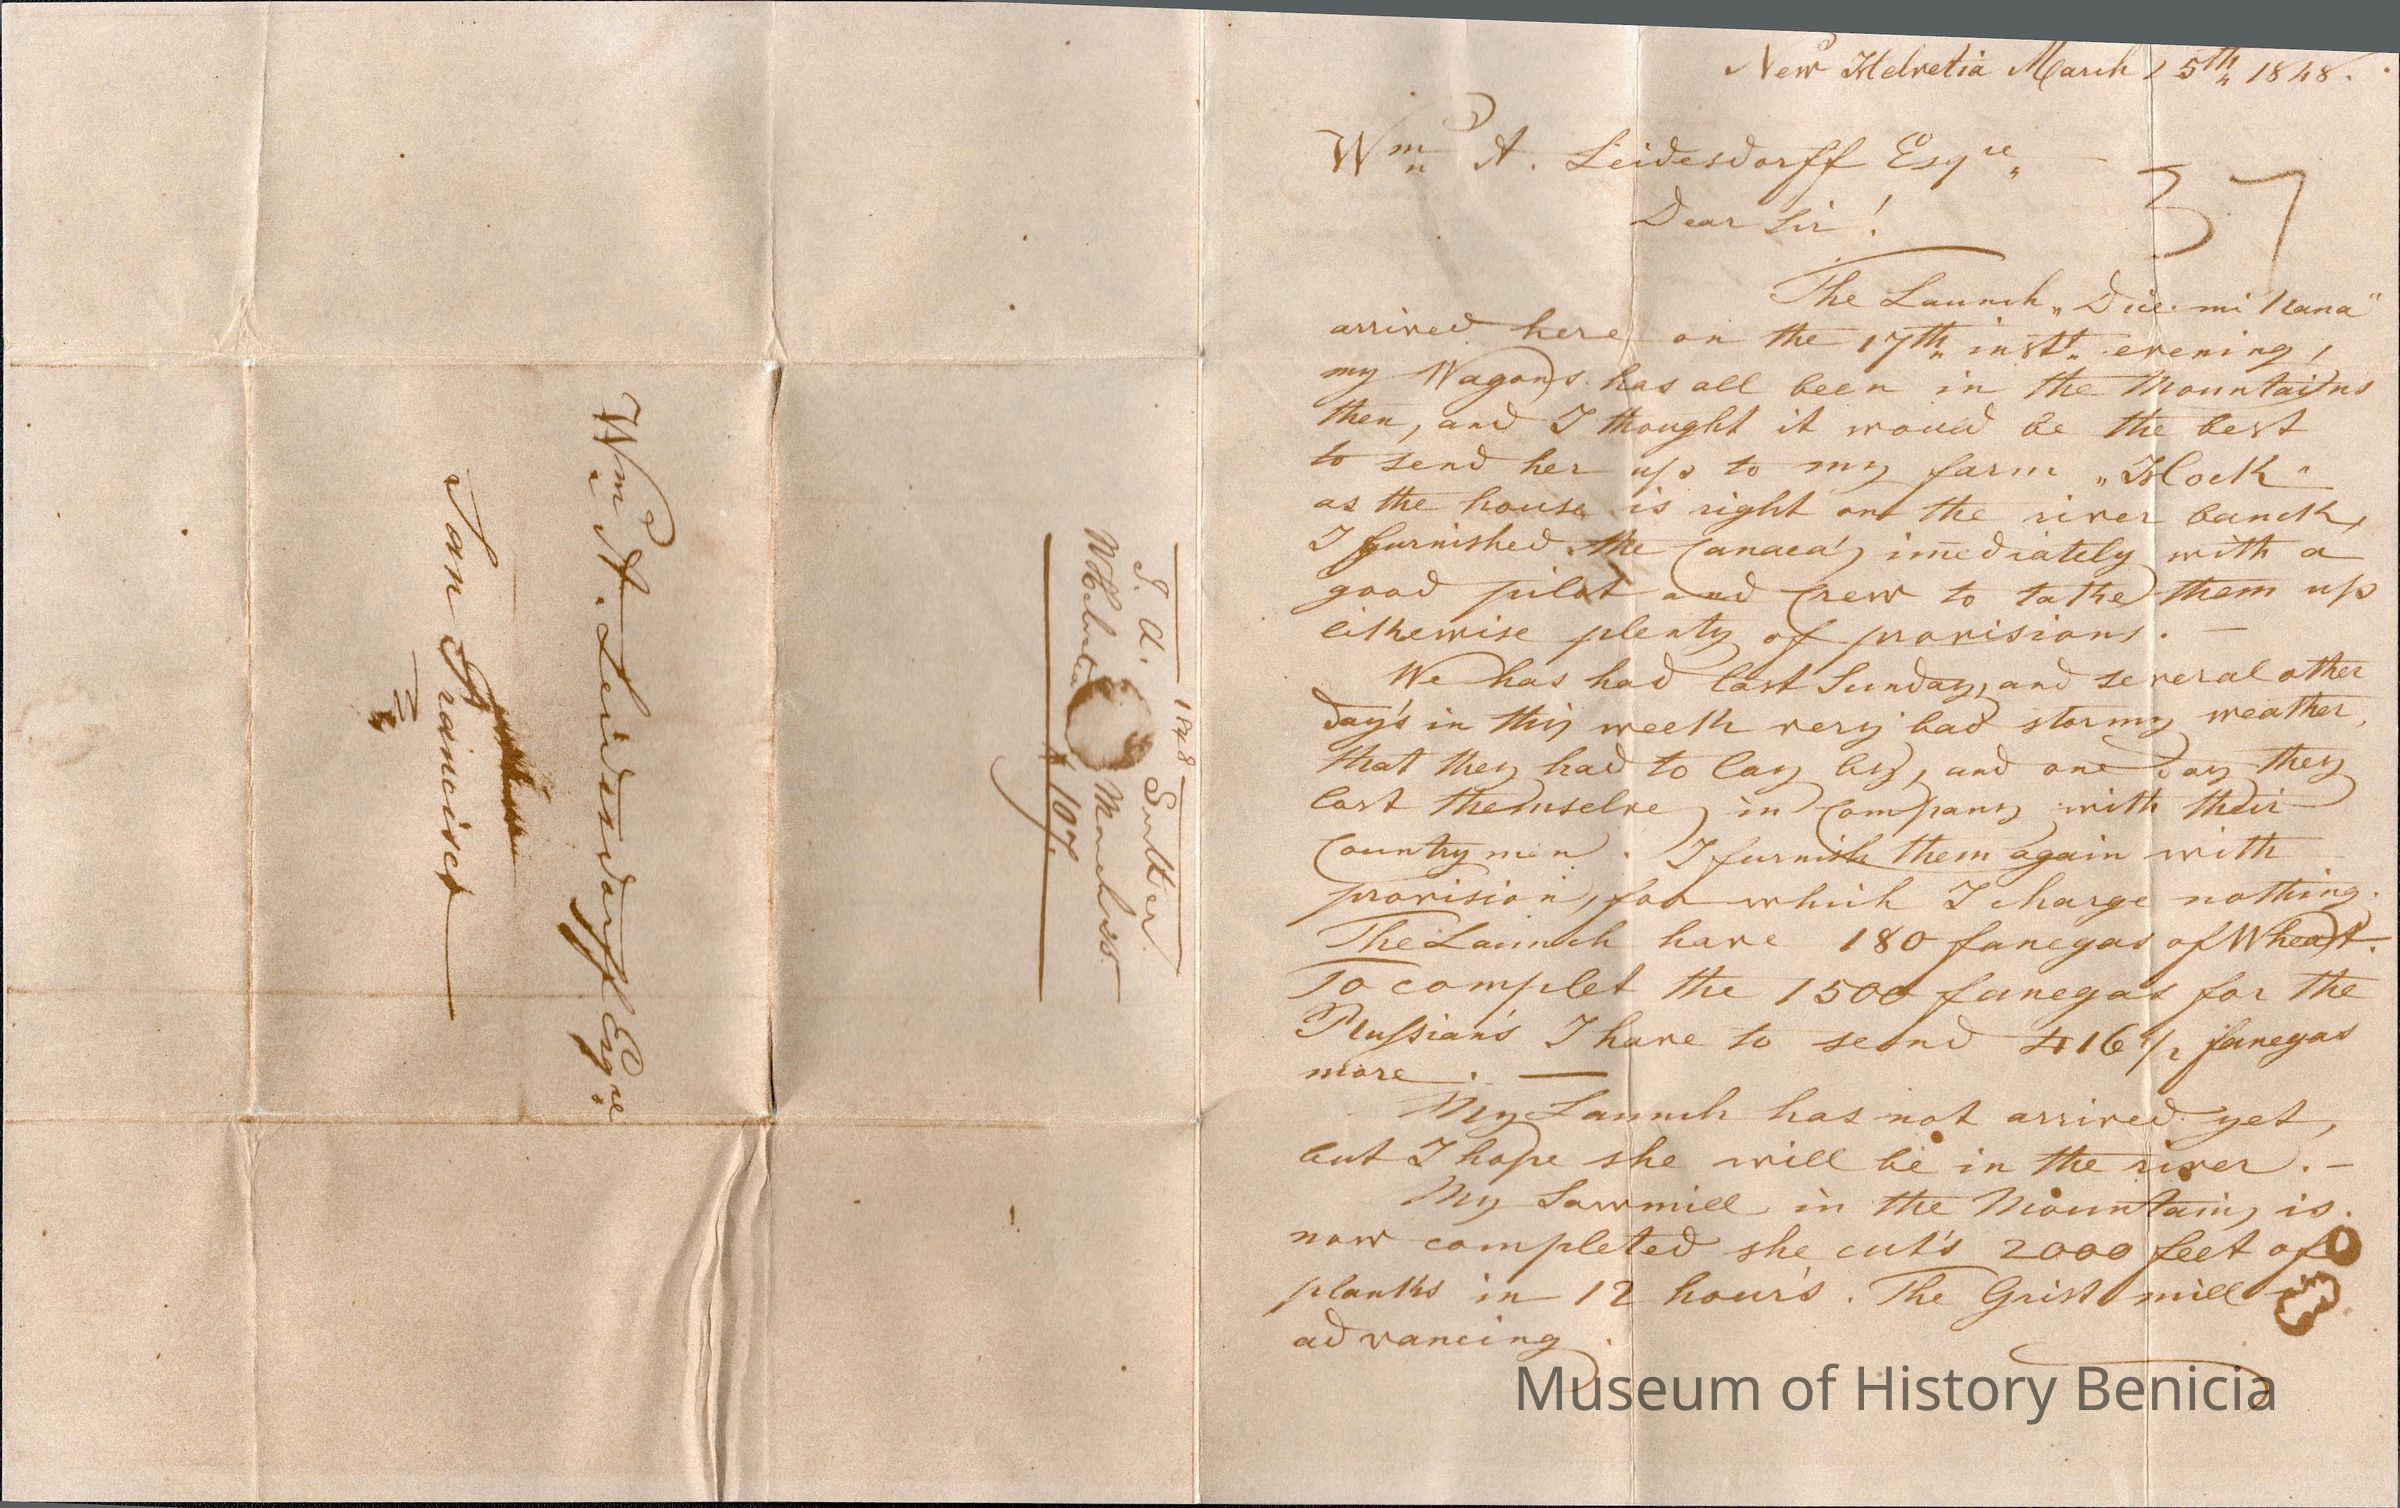 New Helvetia March 25th 1848.
Wm A. Leidesdorff Esqre
37
Dear Sir!
The Launch „Dice mi Nana"
arrived here on the 17th inst. evening,
my Wagons has all been in the Mountains
then, and I thought it woud be the best
to send her up to my farm „Hock"
as the house is right on the river banck,
I furnished the Canaca's imediately with a
good pilot and Crew to takhe them up
likewise plenty of provisions. —
We has had last Sunday, and several other
day's in this weeck very bad stormy weather,
that they had to lay by, and one day they
lost themselves in Company with their
Countrymen. I furnish them again with
provision, for which I charge nothing.
The Launch have 180 fanegas of Wheat.
To complet the 1500 fanegas for the
Russian's I have to seend 416 1/2 fanegas
more. —
My Launch has not arrived yet,
but I hope she will be in the river. —
My Sawmill in the Mountains is
now completed she cut's 2000 feet of
planks in 12 hour's. The Grist mill is
advancing.
1848
J. A. Sutter.
N Helvetia March 25
107
Wm A. Leidesdorff Esqre
San Francisco
Museum of History Benicia